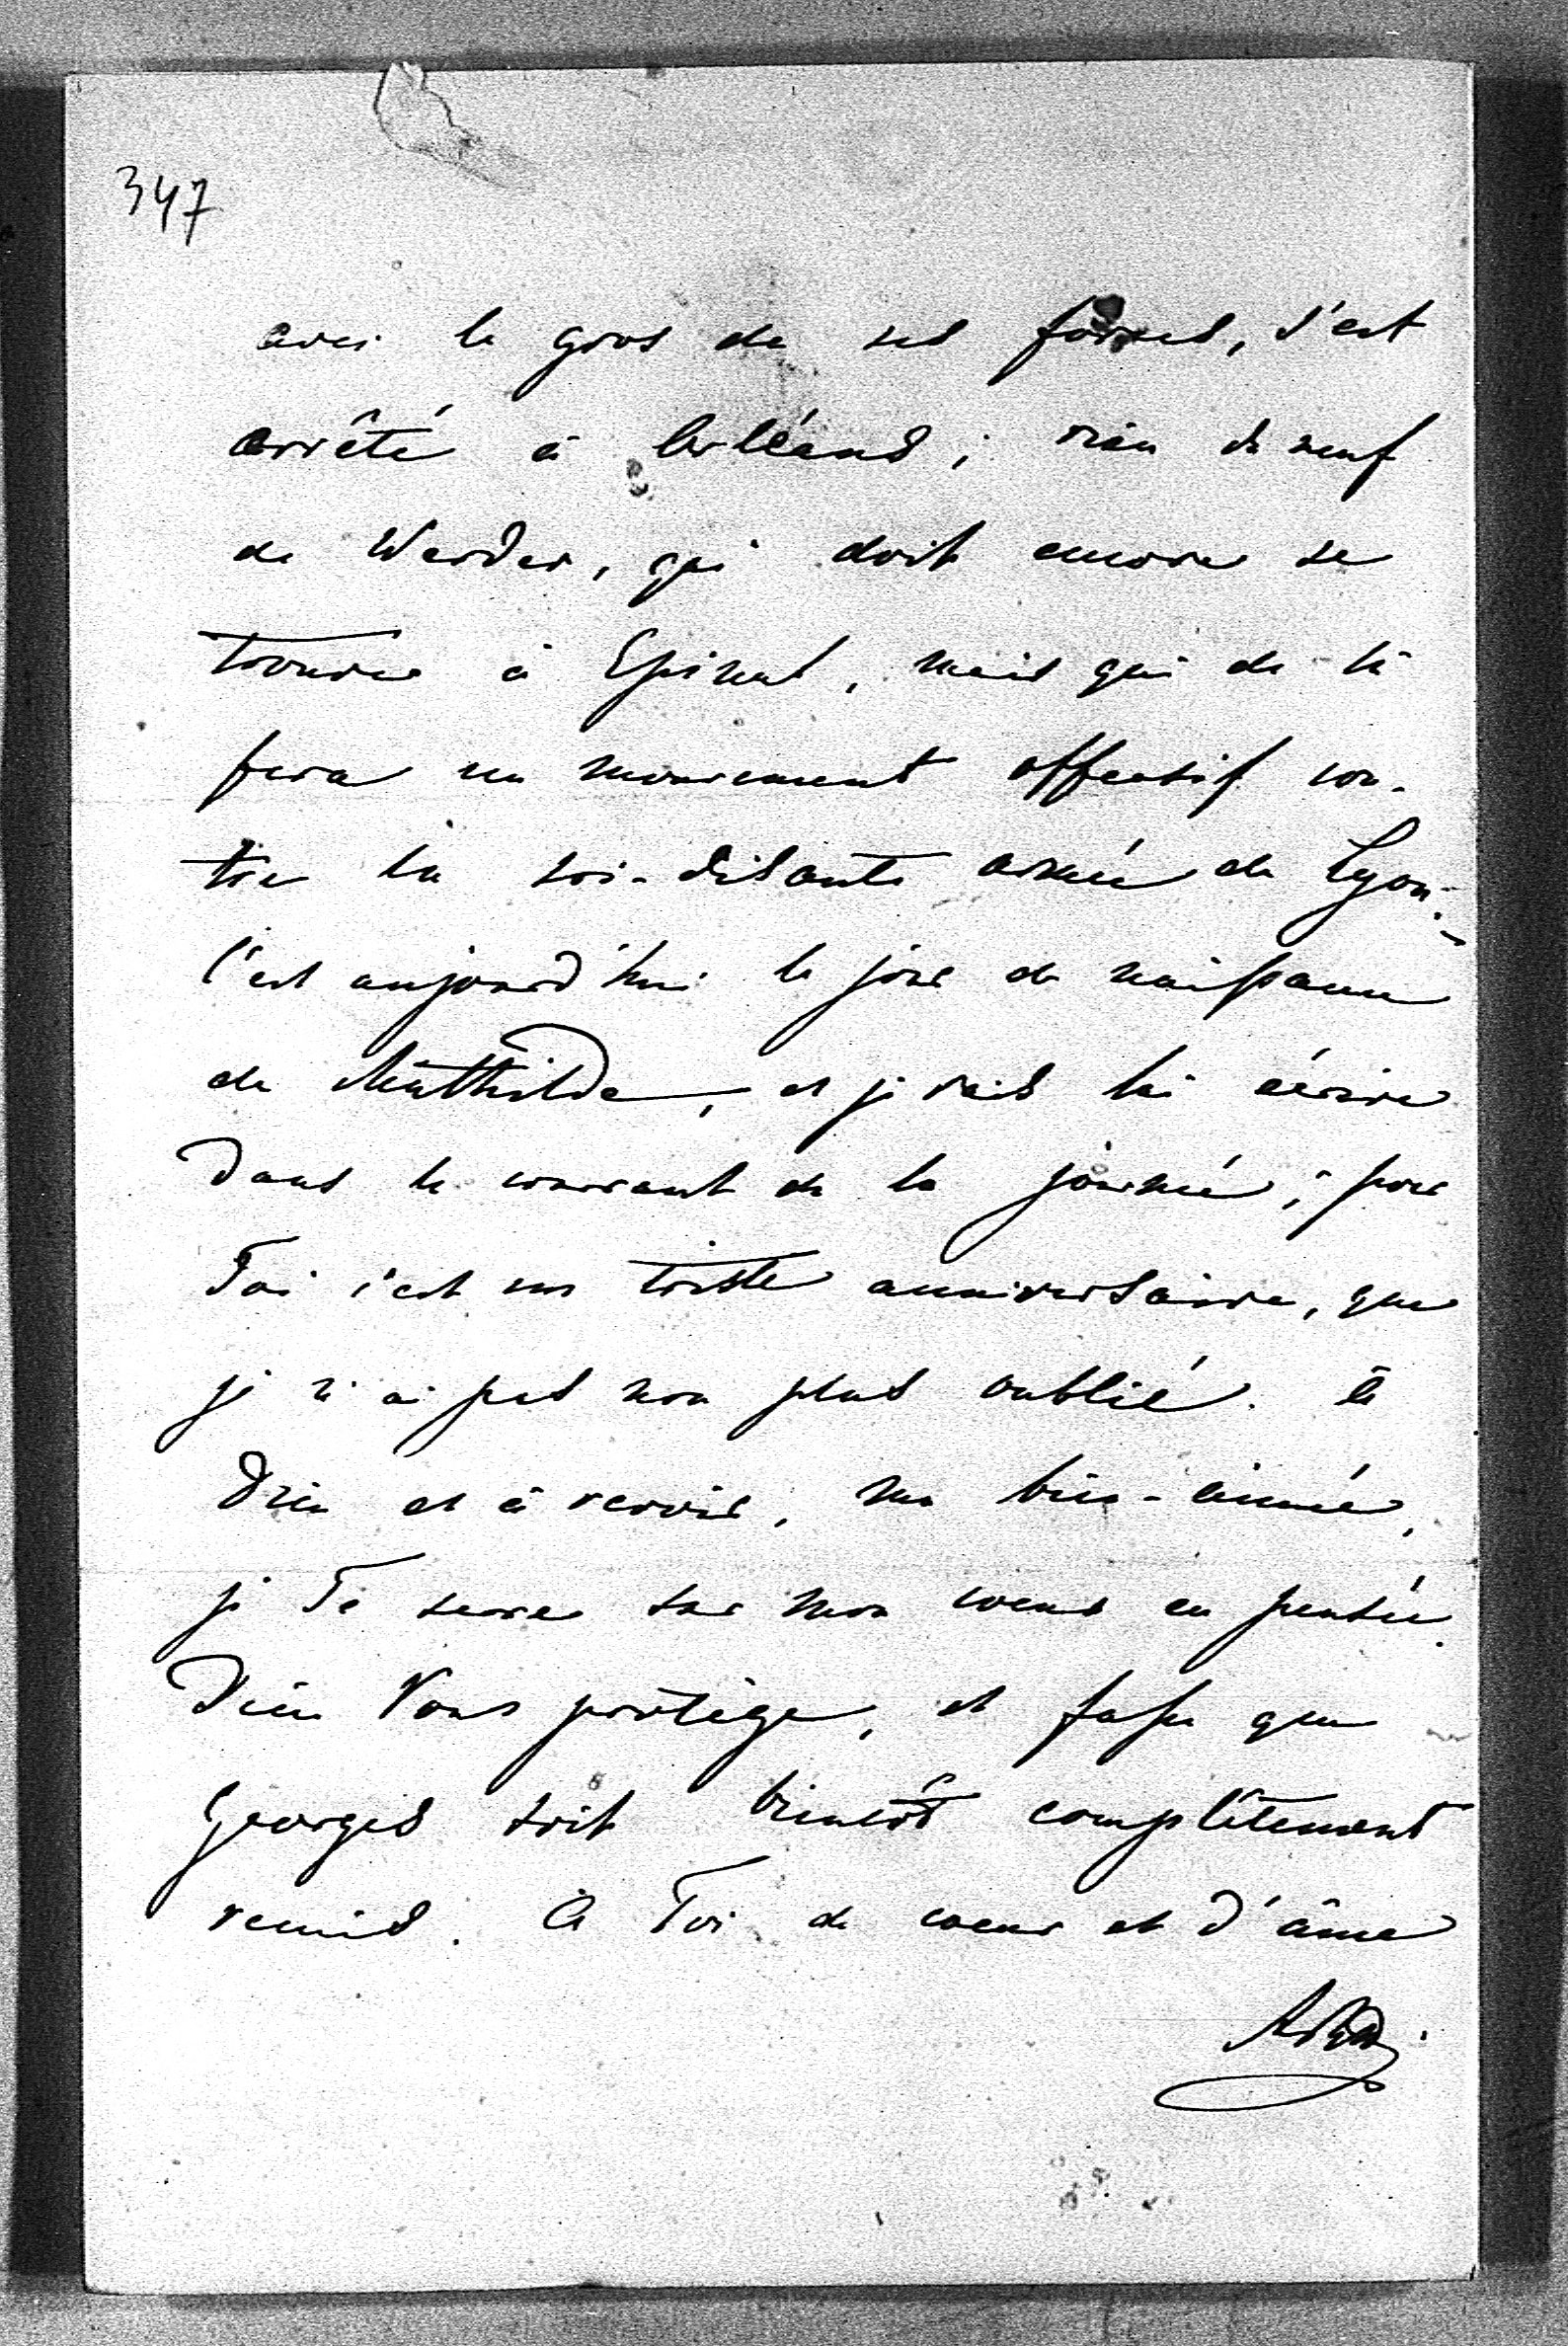 347
avec le gros de ses forces, s'est
arrêté à Orléans; rien de neuf
de Werder, qui doit encore se
trouver à Epinal, mais qui de là
fera un mouvement offensif con-
tre la soi-disante armée de Lyon.–
C'est aujourd'hui le jour de naissance
de Mathilde, et je vais lui écrire
dans le courant de la journée; pour
Toi c'est un triste anniversaire, que
je n'ai pas non plus oublié. à
Dieu et à revoir, ma bien-aimée,
je Te serre sur mon coeur en pensée.
Dieu Vous protège, et fasse que
Georges soit bientôt complètement
remis. à Toi de coeur et d'âme